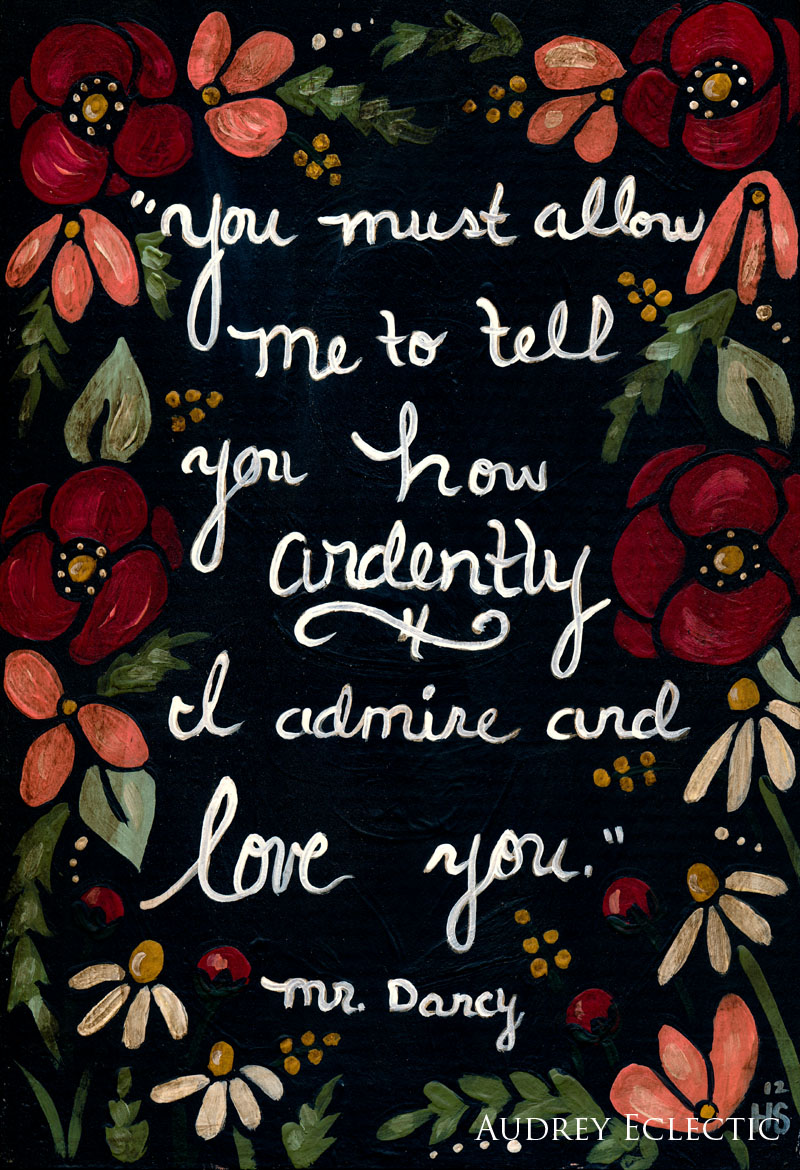 "you must allow
me to tell
you how
ardently
I admire and
love you."
mr. Darcy
12
HS
AUDREY ECLECTIC